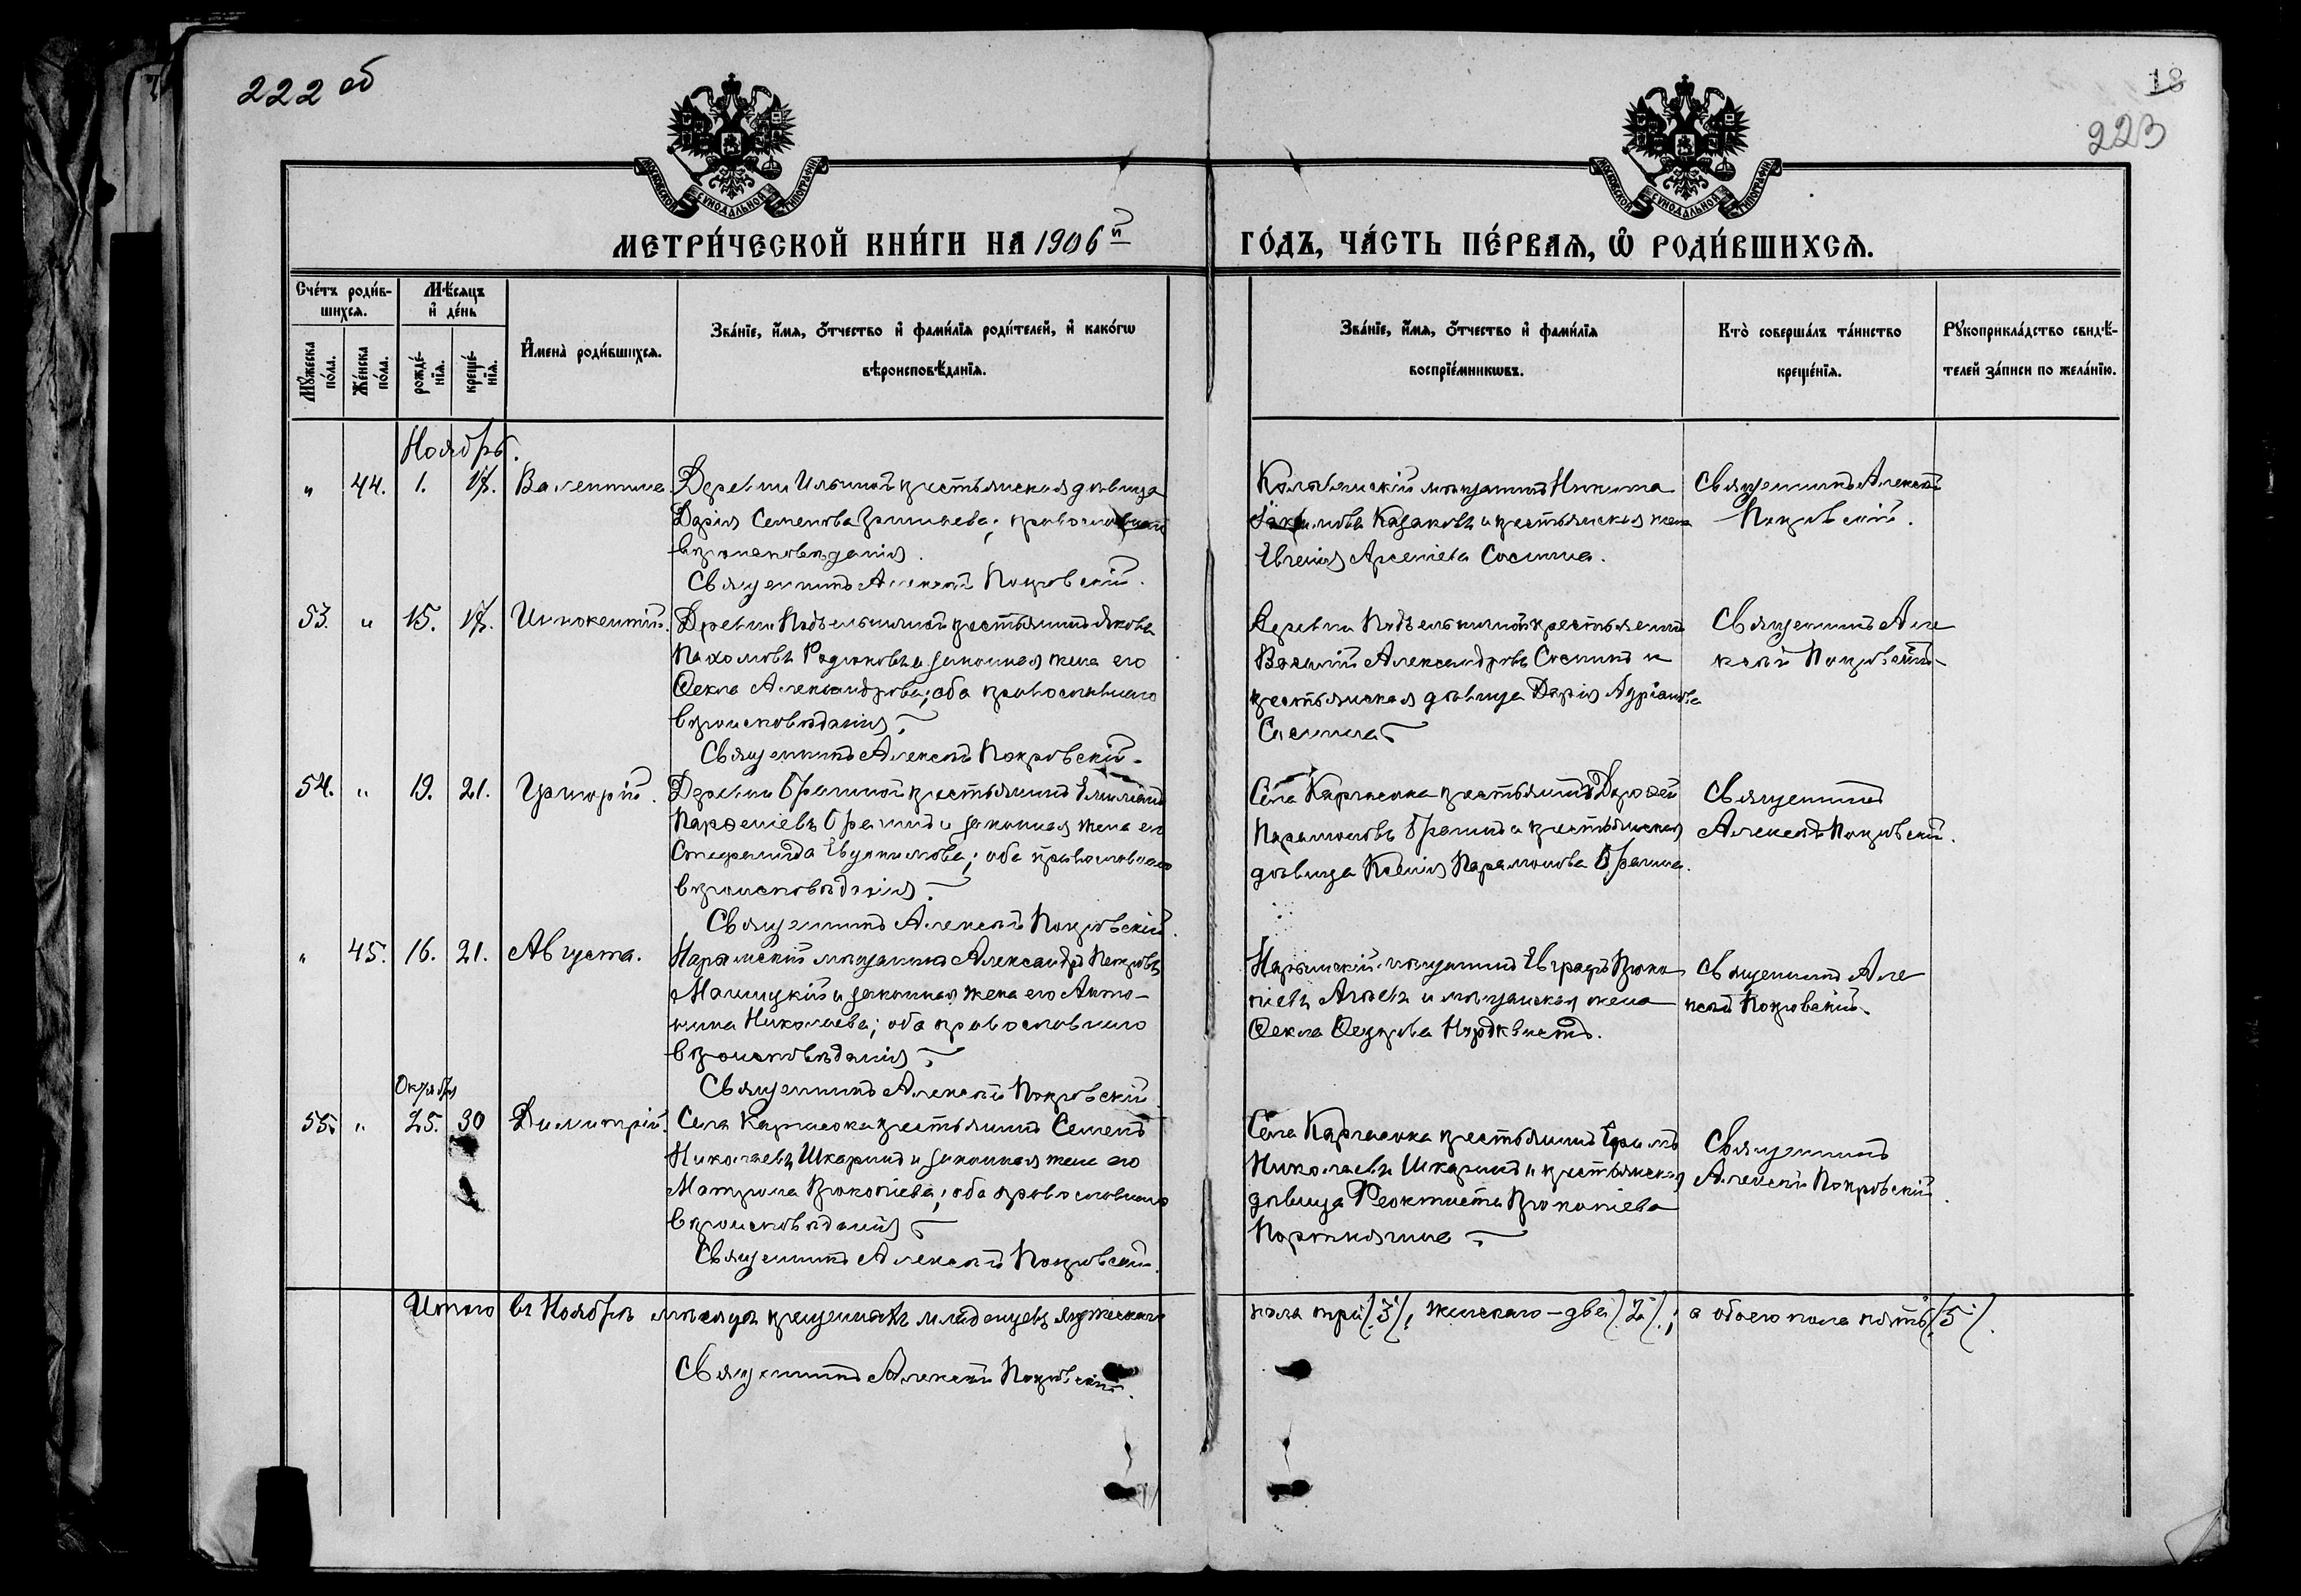 222 об
18
223
МОСКОВСКОЙ СѴНОДАЛЬНОЙ ТИПОГРАФІИ
МОСКОВСКОЙ СѴНОДАЛЬНОЙ ТИПОГРАФІИ
МЕТРИ́ЧЕСКОЙ КНИ́ГИ НА 1906й
ГО́ДЪ, ЧА́СТЬ ПЕ́РВАЯ, Ѡ РОДИ́ВШИХСЯ.
Сче́тъ роди́в-
шихся.
Мѣ́сяцъ
и де́нь
Му́жеска по́ла.
Же́нска по́ла.
рожде́-
нїя.
креще́-
нїя.
Имена̀ роди́вшихся.
Зва́нїе, и́мя, о́тчество и фами́лїя роди́телей, и како́гѡ
вѣроисповѣ́данїя.
Зва́нїе, и́мя, о́тчество и фами́лїя
воспрїе́мникѡвъ.
Кто̀ соверша́лъ та́инство
креще́нїя.
Рꙋкоприкла́дство свидѣ́-
телей за́писи по жела́нїю.
Ноябрь.
" 44. 1. 17. Валентина.
Деревни Ильиной крестьянская дѣвица
Дарія Семенова; православнаго
вѣроисповѣданія.
Священникъ Алексѣй Покровскій.
Колыванскій мѣщанинъ Никита
Казаковъ и крестьянская жена
Евгенія Арсеніева Соснина.
Священникъ Алексѣй
Покровскій.
53. " 15. 17. Иннокентій.
Деревни Подъельничной крестьянинъ Яковъ
Пахомовъ Родюковъ и законная жена его
Ѳекла Александрова; оба православнаго
вѣроисповѣданія
Священникъ Алексѣй Покровскій.
Деревни Подъельничной крестьянинъ
Василій Александровъ Соснинъ и
крестьянская дѣвица Дарія Адріанова
Соснина
Священникъ Але
ксѣй Покровскій
54. " 19. 21. Григорій.
Деревни крестьянинъ Емиліанъ
Парѳеніевъ и законная жена его
Стефанида Евдокимова; оба православнаго
вѣроисповѣданія
Священникъ Алексѣй Покровскій.
Села Каргасока крестьянинъ Дороѳей
Парамоновъ и крестьянская
дѣвица Ксенія Парамонова
Священникъ
Алексѣй Покровскій.
" 45. 16. 21. Августа.
Нарымскій мѣщанинъ Александръ Петровъ
и законная жена его Анто-
нина Николаева; оба православнаго
вѣроисповѣданія
Священникъ Алексѣй Покровскій
Нарымскій мѣщанинъ Евграфъ Проко
піевъ и мѣщанская жена
Ѳекла Ѳедорова Нордквистъ.
Священникъ Але
ксѣй Покровскій
Октября
55. " 25. 30 Димитрій.
Села Каргасока крестьянинъ Семенъ
Николаевъ Шкаринъ и законная жена его
Матрона Прокопіева; оба православнаго
вѣроисповѣданія
Священникъ Алексѣй Покровскій.
Села Каргасока крестьянинъ Ефимъ
Николаевъ Шкаринъ и крестьянская
дѣвица Ѳеоктиста Прокопіева
Священникъ
Алексѣй Покровскій.
Итого въ Ноябрѣ мѣсяцѣ крещенныхъ младенцевъ мужескаго
пола три /3/, женскаго – двѣ /2/; а обоего пола пять /5/.
Священникъ Алексѣй Покровскій.